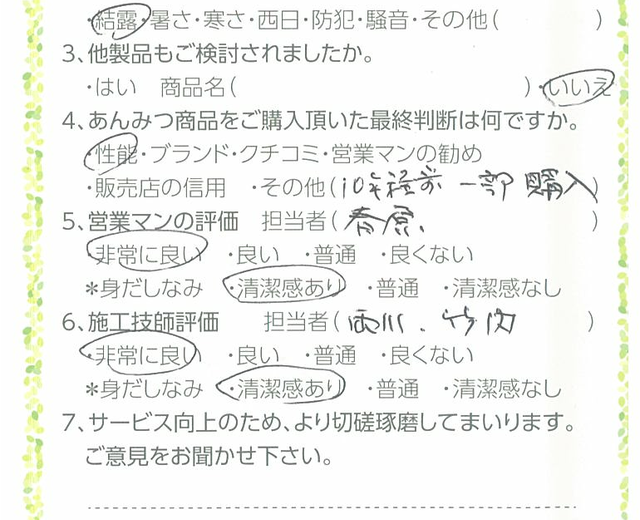 ・結露・暑さ・寒さ・西日・防犯・騒音・その他( )
3、他製品もご検討されましたか。
・はい 商品名( )・いいえ
4、あんみつ商品をご購入頂いた最終判断は何ですか。
・性能・ブランド・クチコミ・営業マンの勧め
・販売店の信用 ・その他(10年程前 一部 購入)
5、営業マンの評価 担当者(春原)
・非常に良い ・良い ・普通 ・良くない
*身だしなみ ・清潔感あり ・普通 ・清潔感なし
6、施工技師評価 担当者(雨川、竹内)
・非常に良い ・良い ・普通 ・良くない
*身だしなみ ・清潔感あり ・普通 ・清潔感なし
7、サービス向上のため、より切磋琢磨してまいります。
ご意見をお聞かせ下さい。